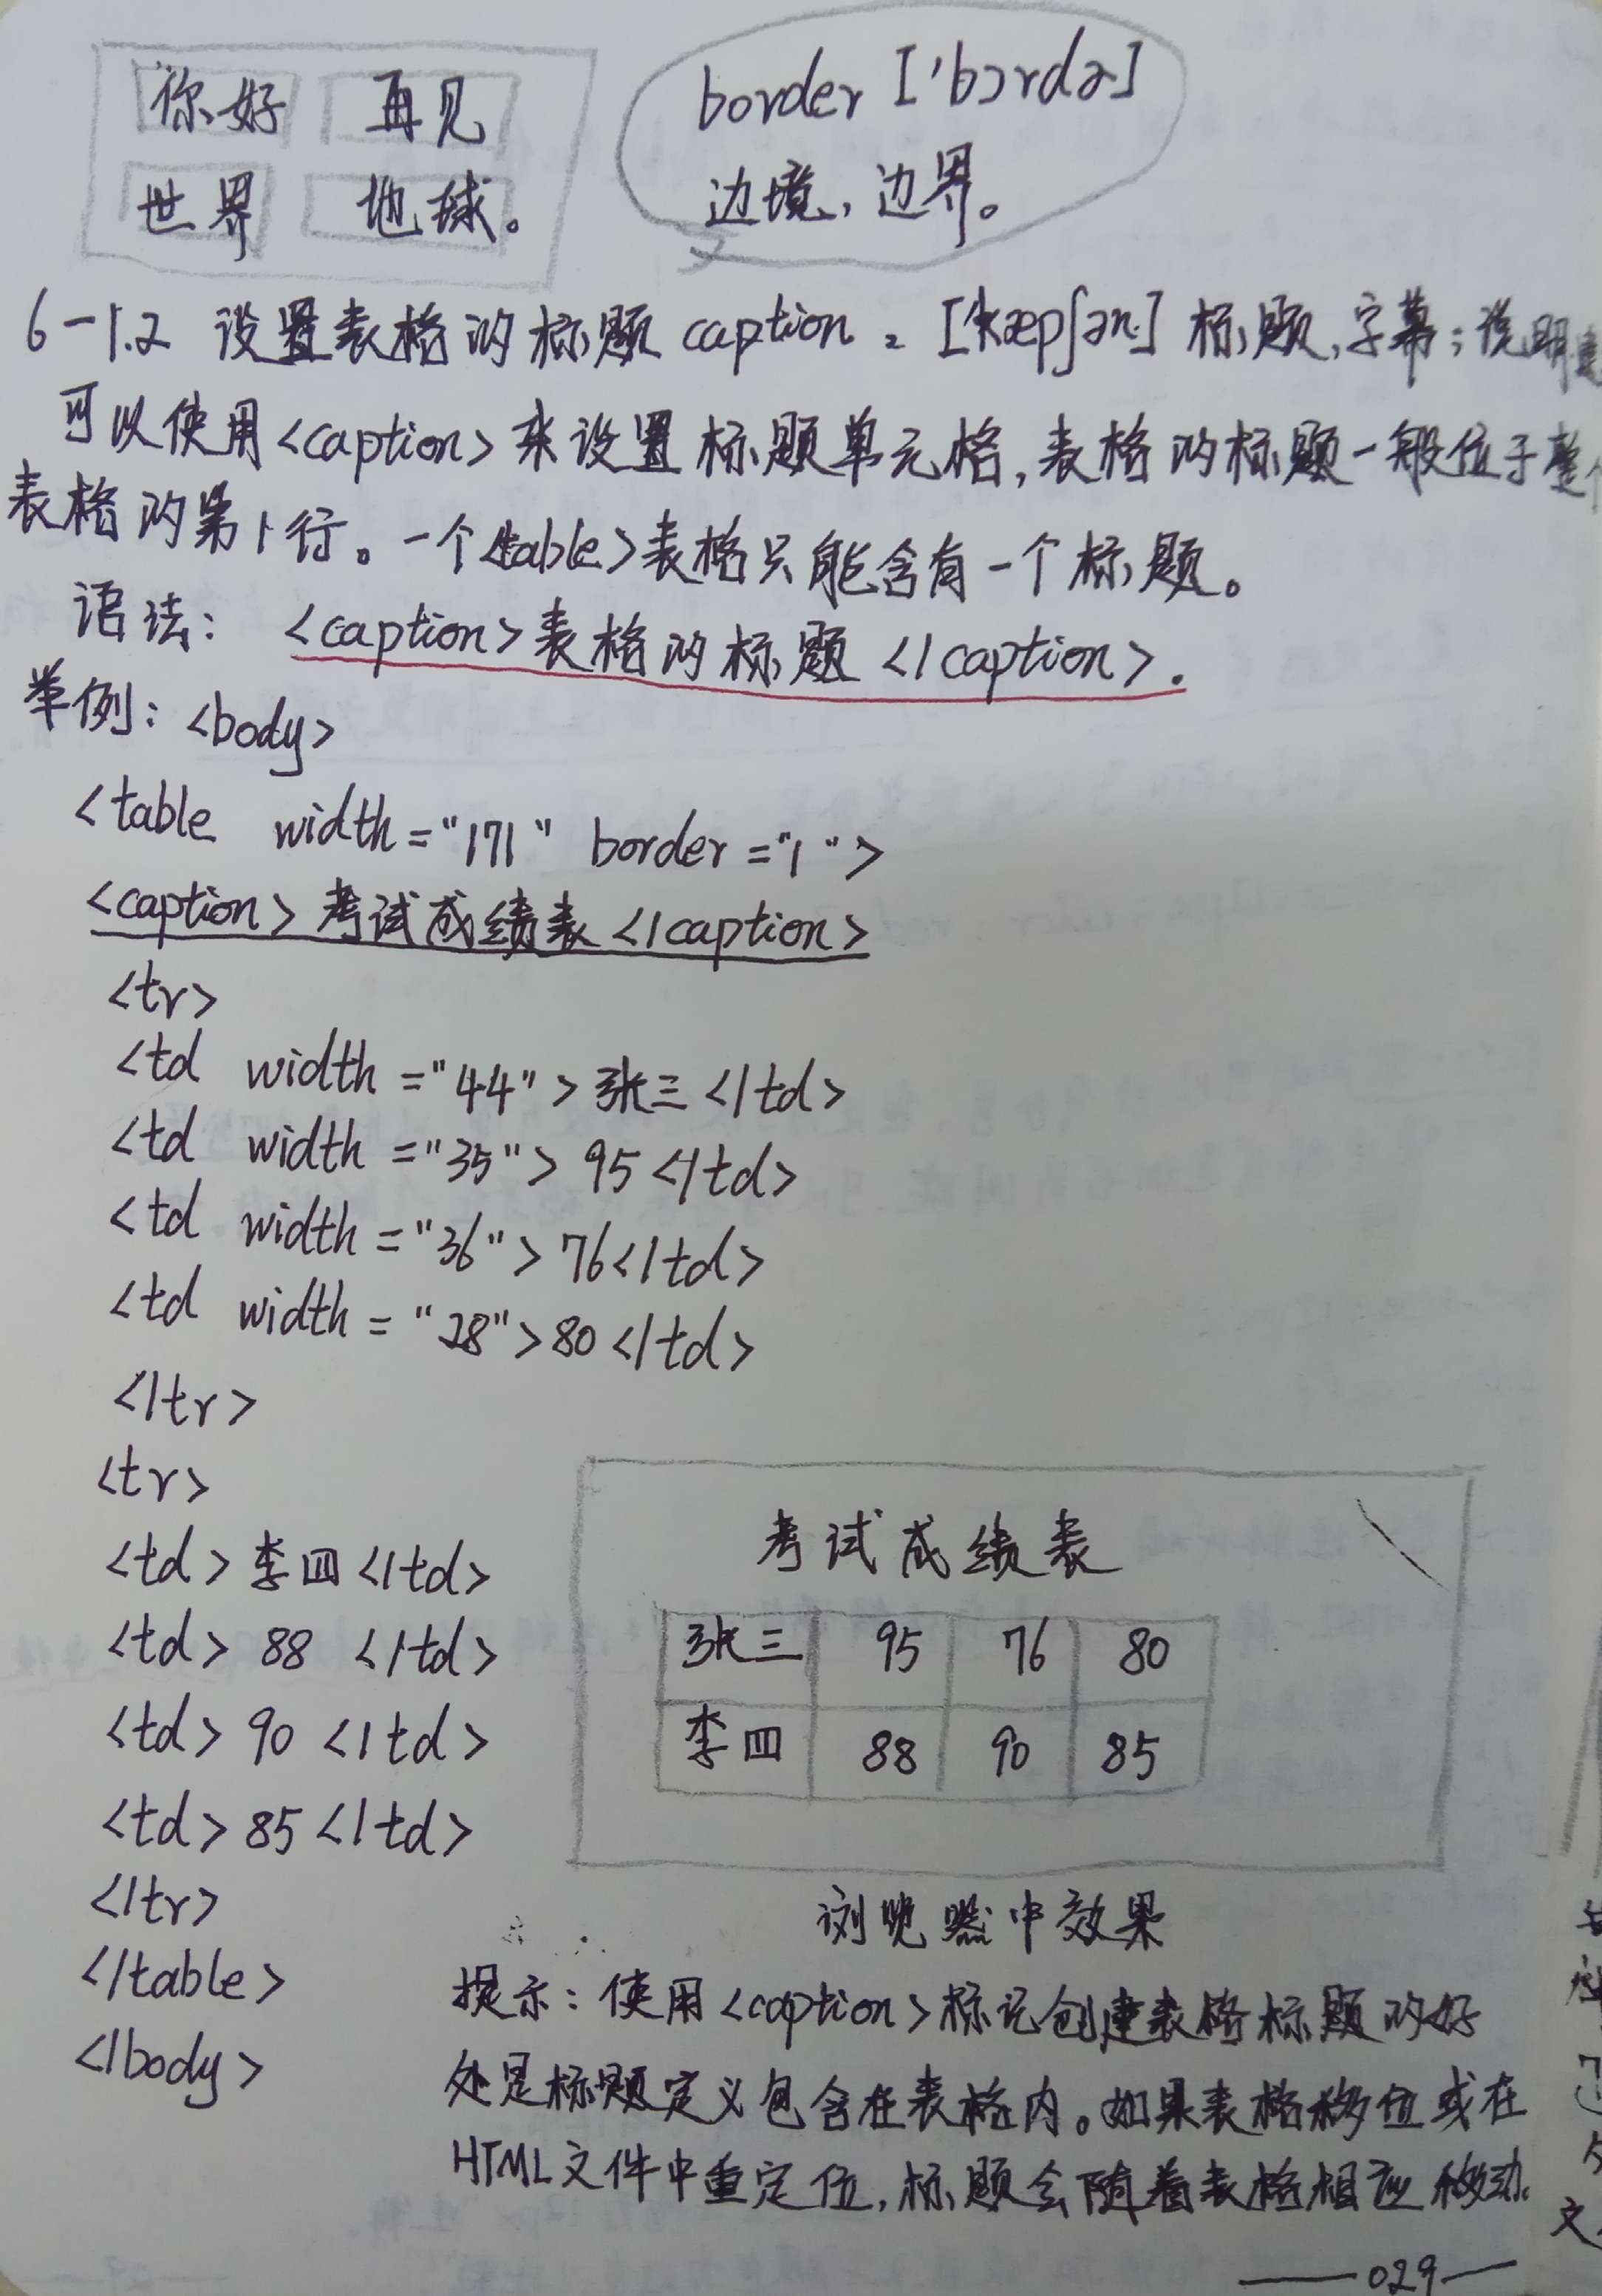 你好 再见
世界 地球。
border ['bɔrdə]
边境,边界。
6-1.2 设置表格的标题 caption 。['kæpʃən] 标题,字幕;说明
可以使用<caption>来设置标题单元格,表格的标题一般位于整个
表格的第1行。一个<table>表格只能含有一个标题。
语法: <caption>表格的标题</caption>.
举例: <body>
<table width="171" border="1">
<caption>考试成绩表</caption>
<tr>
<td width="44">张三</td>
<td width="35">95</td>
<td width="36">76</td>
<td width="28">80</td>
</tr>
<tr>
<td>李四</td>
<td>88</td>
<td>90</td>
<td>85</td>
</tr>
</table>
</body>
考试成绩表
张三 95 76 80
李四 88 90 85
浏览器中效果
提示:使用<caption>标记创建表格标题的好
处是标题定义包含在表格内。如果表格移位或在
HTML文件中重定位,标题会随着表格相应移动.
029